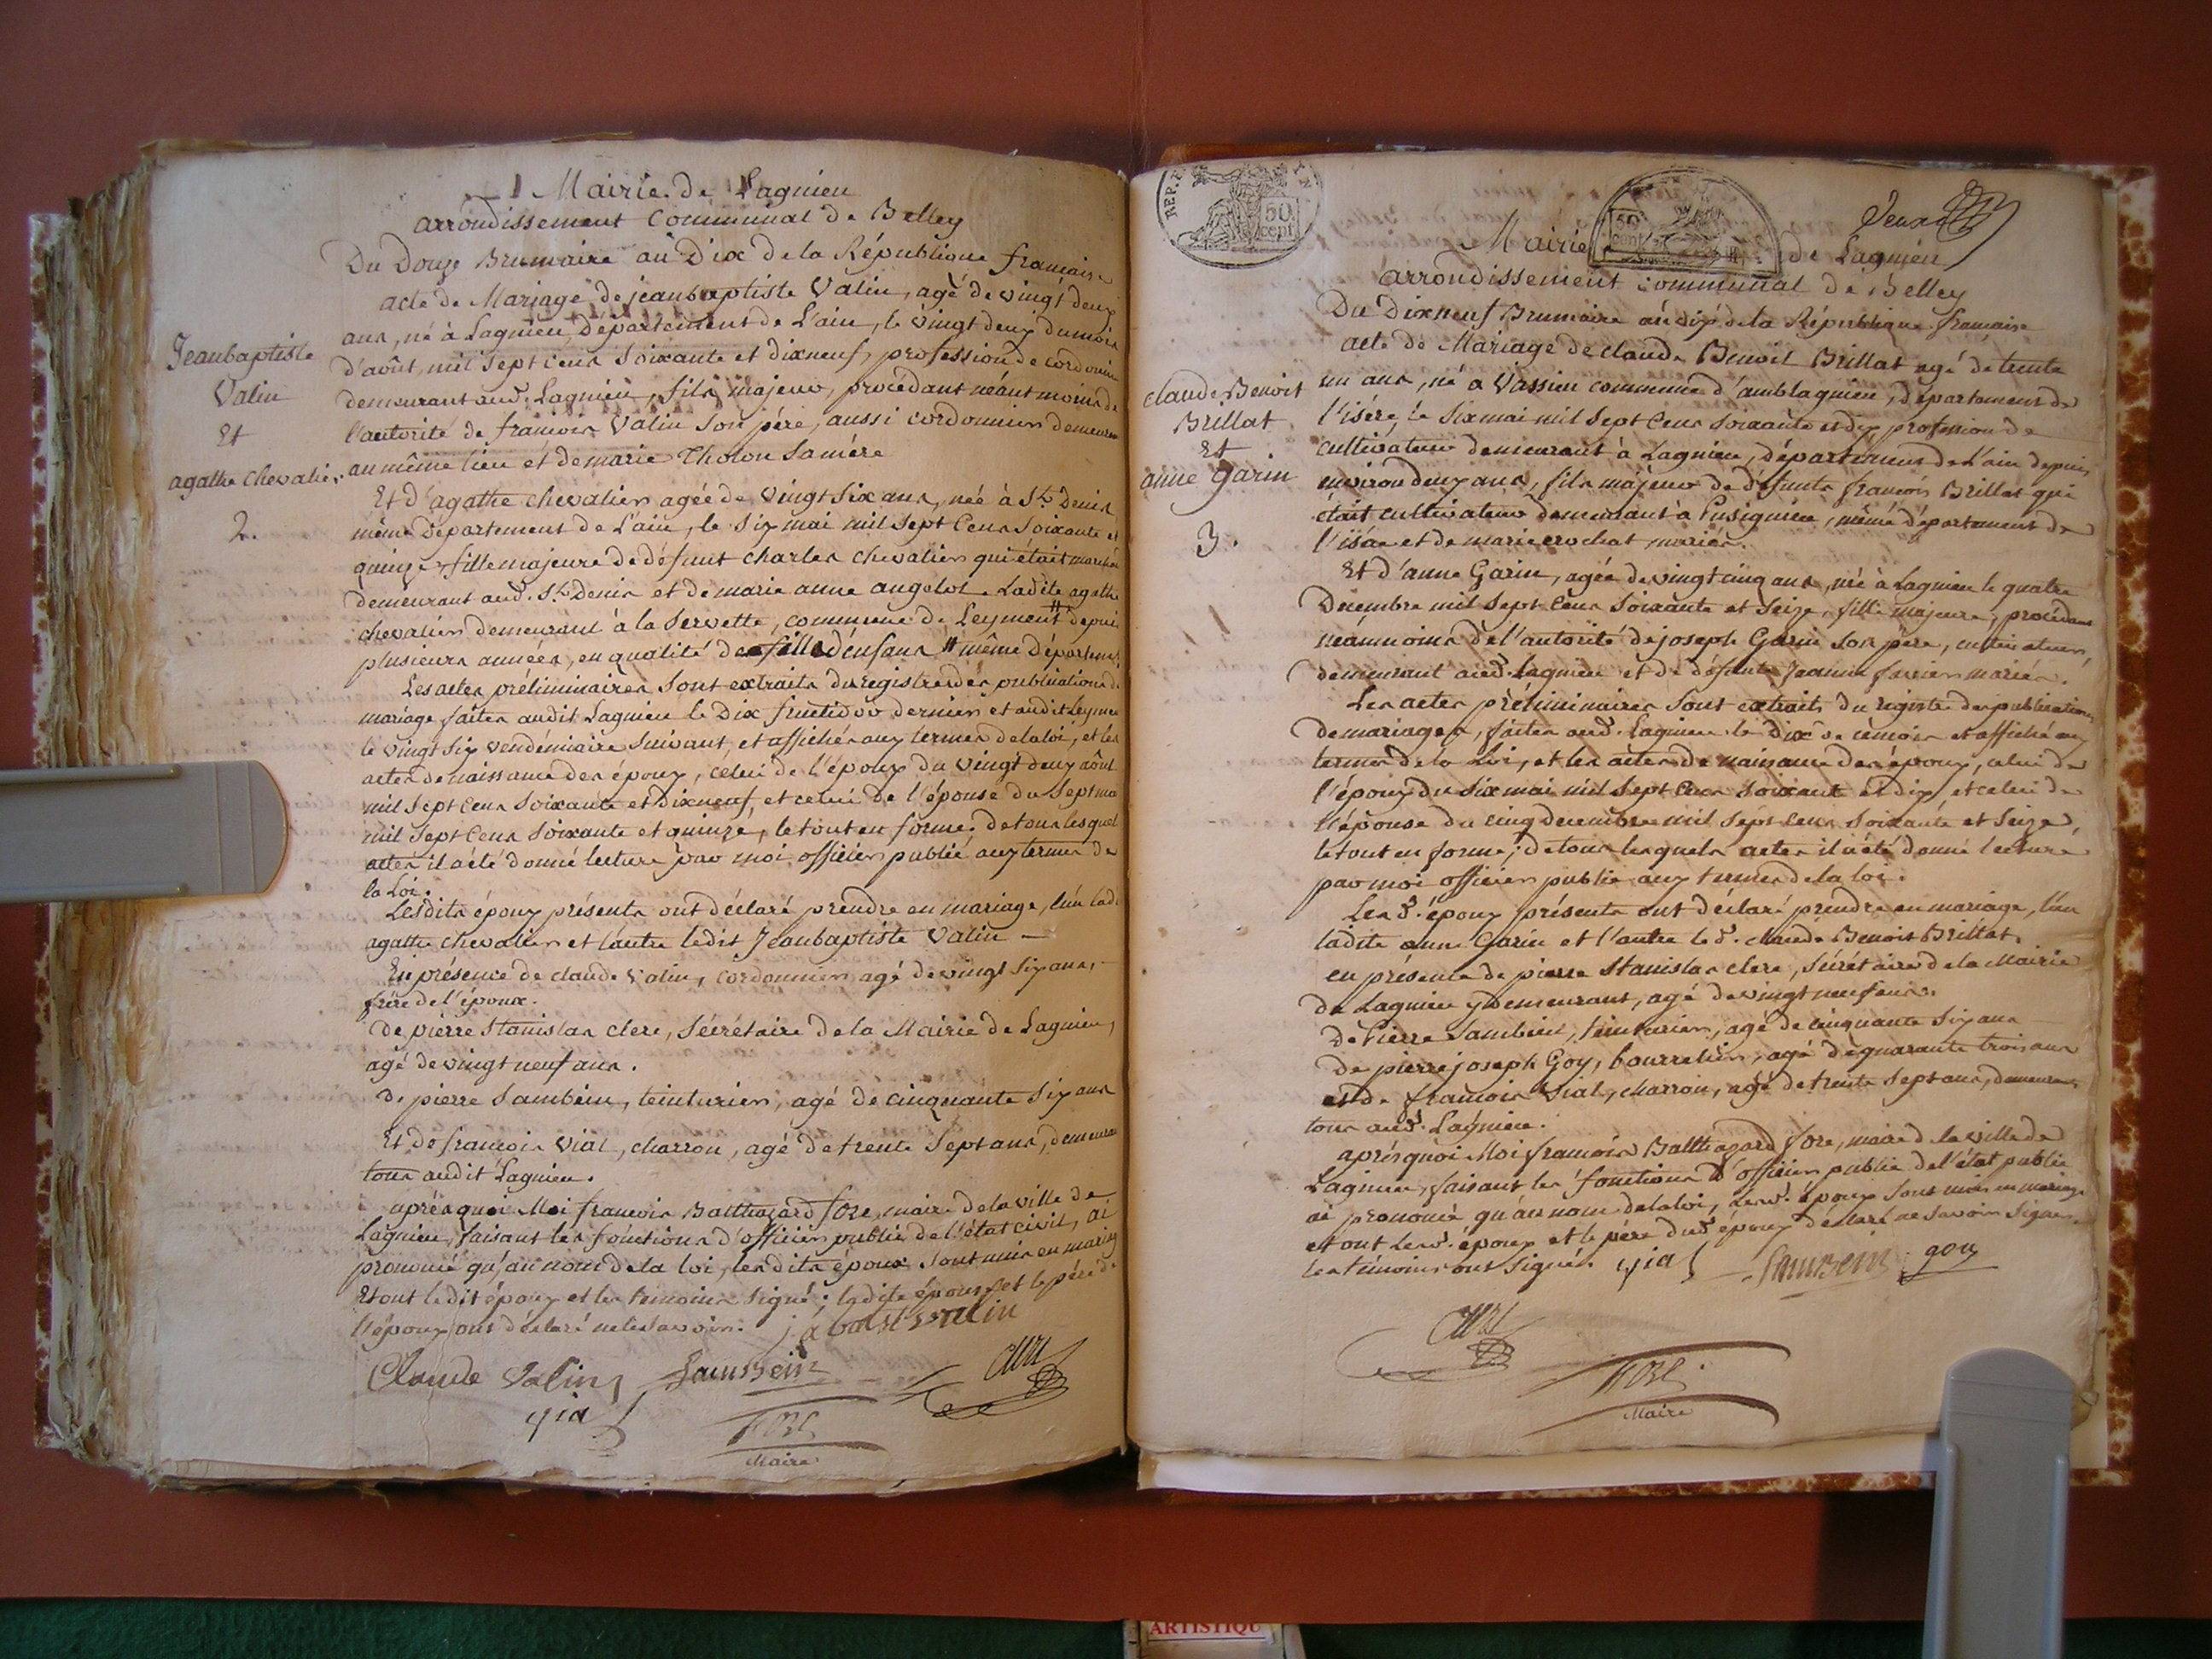 Mairie de Lagnieu
arrondissement Communal de Belley
Du Douze Brumaire an Dix de la République française
acte de Mariage de jeanbaptiste Valin, agé de vingt deux
ans, né à Lagnieu, Département de L'ain, le vingt deux du mois
d'août, mil Sept Cens Soixante et dixneuf, profession de cordonnier
demeurant aud. Lagnieu, fils majeur, procédant néantmoins de
l'autorité de francois Valin Son père, aussi cordonnier demeurant
au même lieu et de marie Tholon Sa mère
Jeanbaptiste
Valin
Et
agathe Chevalier
2.
Et d'agathe chevalier agée de vingt Six ans, née à St. Denis
même Département de L'ain, le Six mai mil Sept Cens Soixante et
quinze, fille majeure de défunt charles chevalier qui était
demeurant aud. St. Denis et de marie anne angelot. Ladite agathe
chevalier demeurant à la Servette, commune de Leyment # depuis
plusieurs années, en qualité de fille d'enfans # même départemt.
Les actes préliminaires Sont extraits du registre des publications de
mariage faites audit Lagnieu le Dix fructidor dernier et audit Leyment
le vingt Six vendémiaire Suivant, et affichés aux termes de la loi, et les
actes de naissance des époux, celui de l'époux du vingt deux août
mil Sept Cens Soixante et dixneuf, et celui de l'épouse du Sept mai
mil Sept Cens Soixante et quinze, le tout en forme; de tous lesquels
actes il a été donné lecture par moi officier public aux termes de
la Loi.
Lesdits époux présents ont déclaré prendre en mariage, l'un lade
agathe chevalier et l'autre ledit Jeanbaptiste Valin —
En présence de claude Valin, cordonnier, agé de vingt Six ans,
frère de l'époux.
De pierre Stanislas clerc, Sécrétaire de la Mairie de Lagnieu,
agé de vingt neuf ans.
De pierre Sambein, teinturier, agé de cinquante Six ans
Et de francois Vial, charron, agé de trente Sept ans, demeurant
tous audit Lagnieu.
après quoi Moi francois Balthazard fore, maire de la ville de
Lagnieu, faisant les fonctions d'officier public de l'état civil, ai
prononcé qu'au nom de la loi, lesdits époux Sont unis en mariage
Et ont ledit époux et les temoins Signé; ladite épouse et le père de
l'époux ont déclaré ne le Savoir. j. a batist valin
Claude Valin Sambein
Clerc
vial
fore
Maire
REP. F
50
cent
50
cent
Deux
Mairie de Lagnieu
arrondissement communal de Belley
Du Dixneuf Brumaire an dix de la République française
acte de Mariage de claude Benoit Brillat agé de trente
un ans, né a Vassieu commune d'amblagnieu, département de
l'isére, le Six mai mil Sept Cens Soixante et dix profession de
cultivateur demeurant à Lagnieu, Département de L'ain depuis
environ deux ans, fils majeur de défunts françois Brillat qui
était cultivateur demeurant à Pusignieu, même département de
l'isére et de marie crochat, mariés.
claude Benoit
Brillat
Et
anne Garin
3.
Et d'anne Garin, agée de vingt cinq ans, née à Lagnieu le quatre
Décembre mil Sept Cens Soixante et Seize, fille majeure, procédant
néanmoins de l'autorité de joseph Garin Son père, cultivateur
demeurant aud. Lagnieu et de défunte Jeanne mariés.
Les actes préliminaires Sont extraits du registre des publications
de mariages, faites aud. Lagnieu le Dix de ce mois et affiché aux
termes de la Loi, et les actes de naissance des époux, celui de
l'époux du Six mai mil Sept Cens Soixante et dix, et celui de
l'épouse du cinq décembre mil Sept Cens Soixante et Seize,
le tout en forme; de tous lesquels actes il a été donné lecture
par moi officier public aux termes de la loi.
Les d. époux présents ont déclaré prendre en mariage, l'un
ladite anne Garin et l'autre le d. claude Benoit Brillat,
en présence de pierre Stanislas clerc, Sécrétaire de la Mairie
de Lagnieu y demeurant, agé de vingt neuf ans.
De Pierre Sambein, teinturier, agé de cinquante Six ans
De pierre joseph Goy, bourrelier, agé de quarante trois ans
et de françois Vial, charron, agé de trente Sept ans, demeurant
tous aud. Lagnieu.
après quoi Moi françois Balthazard fore, maire de la ville de
Lagnieu, faisant les fonctions d'officier public de l'état public
ai prononcé qu'au nom de la loi, lesd. époux Sont unis en mariage
et ont lesd. époux et le père dud. époux déclaré ne Savoir Signer
les témoins ont Signé. vial Sambein goy
Clerc
fore
Maire
ARTISTIQU